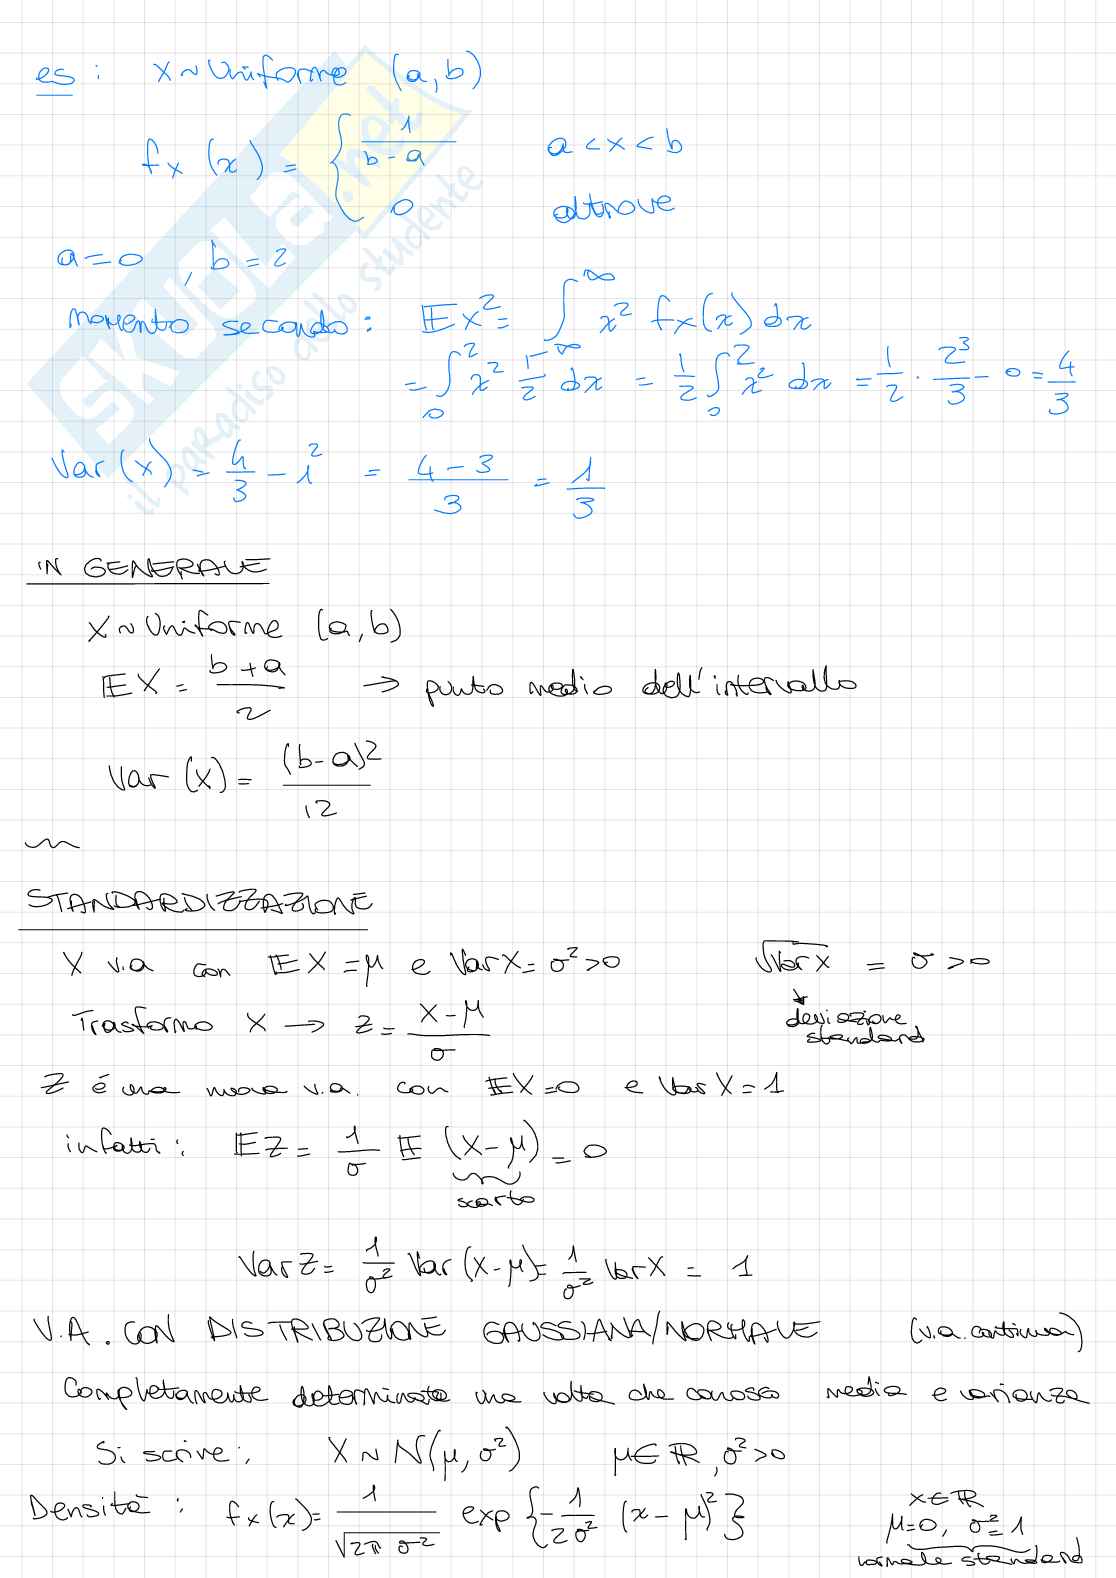 es : X ~ Uniforme (a, b)
f_X (x) = { 1/(b-a)   a < x < b
0   altrove
a = 0 , b = 2
momento secondo : 𝔼X² = ∫_{-∞}^{∞} x² f_X(x) dx
= ∫_0^2 x² 1/2 dx = 1/2 ∫_0^2 x² dx = 1/2 · 2³/3 - 0 = 4/3
Var (X) = 4/3 - 1² = (4-3)/3 = 1/3
IN GENERALE
X ~ Uniforme (a, b)
𝔼X = (b+a)/2 → punto medio dell'intervallo
Var (X) = (b-a)²/12
STANDARDIZZAZIONE
X v.a con 𝔼X = μ e VarX = σ² > 0   √VarX = σ > 0
deviazione
standard
Trasformo X → Z = (X-μ)/σ
Z é una nuova v.a. con 𝔼X = 0 e Var X = 1
infatti : 𝔼Z = 1/σ 𝔼 (X-μ) = 0
scarto
VarZ = 1/σ² Var (X-μ) = 1/σ² VarX = 1
V.A. CON DISTRIBUZIONE GAUSSIANA/NORMALE (v.a. continua)
Completamente determinata una volta che conosco media e varianza
Si scrive : X ~ N(μ, σ²)   μ ∈ ℝ, σ² > 0
Densità : f_X(x) = 1/√(2π σ²) exp {-1/(2σ²) (x-μ)²}   x ∈ ℝ
μ=0, σ²=1
normale standard
skuola.net
il paradiso dello studente